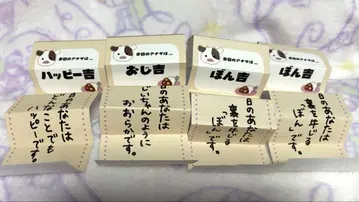 今日のアナタは…
ハッピー吉
日のあなたは
んなことでも
ハッピーです。
今日のアナタは…
おじ吉
日のあなたは
じいちゃんのように
おおらかです。
今日のアナタは…
ぽん吉
日のあなたは
裏を牛じる
「ぽん」です。
今日のアナタは…
ぽん吉
日のあなたは
裏を牛じる
「ぽん」です。